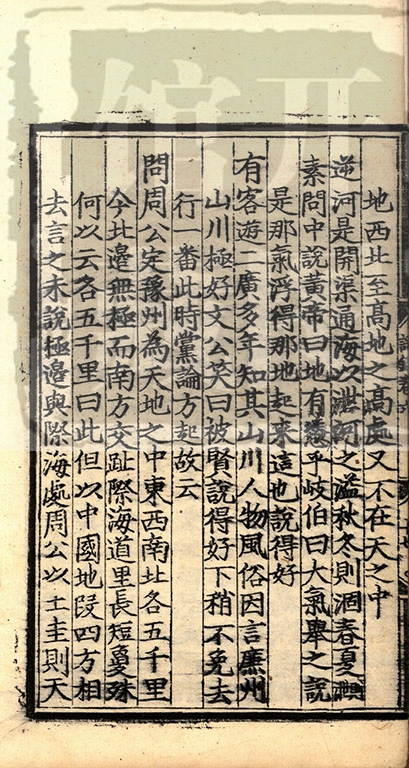 地西北至高地之高處又不在天之中
逆河是開渠通海以泄河之溢秋冬則涸春夏
素問中說黃帝曰地有憑乎岐伯曰大氣舉之說
是那氣浮得那地起來這也說得好
有客遊二廣多年知其山川人物風俗因言廉州
山川極好文公笑曰被賢說得好下稍不免去
行一番此時黨論方起故云
問周公定豫州為天地之中東西南北各五千里
今北邊無極而南方交趾際海道里長短夐殊
何以云各五千里曰此但以中國地段四方相
去言之未說極邊與際海處周公以土圭則天